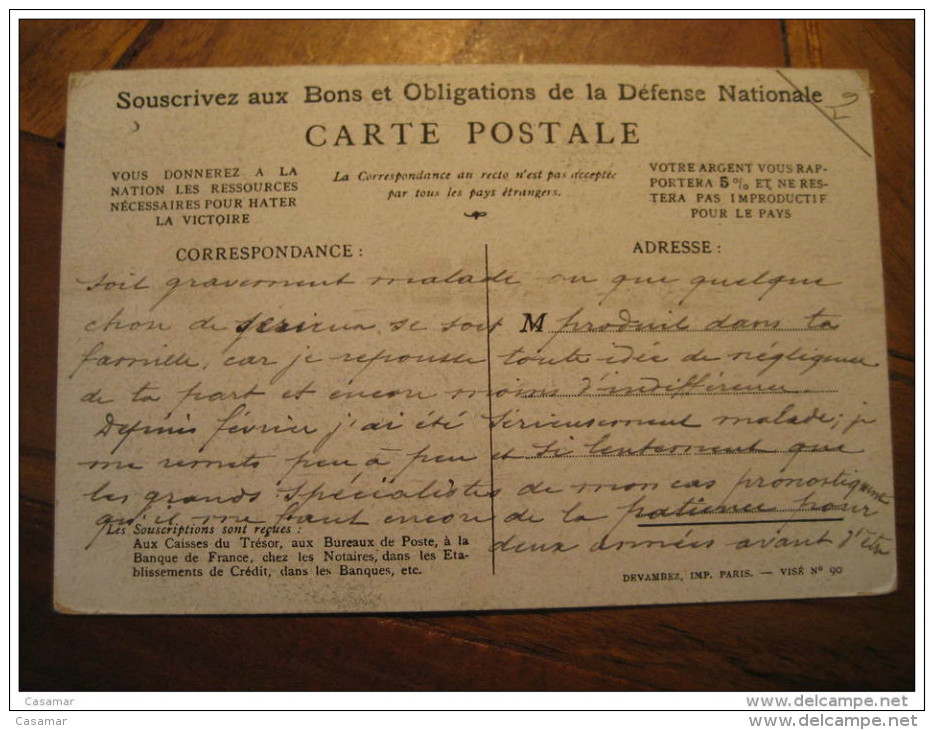 Souscrivez aux Bons et Obligations de la Défense Nationale
2
CARTE POSTALE
VOUS DONNEREZ A LA
NATION LES RESSOURCES
NÉCESSAIRES POUR HATER
LA VICTOIRE
La Correspondance au recto n'est pas acceptée
par tous les pays étrangers.
VOTRE ARGENT VOUS RAP-
PORTERA 5 % ET NE RES-
TERA PAS IMPRODUCTIF
POUR LE PAYS
CORRESPONDANCE :
ADRESSE :
soit gravement malade ou que quelque
chose de sérieux se soit M produit dans ta
famille, car je repousse toute idée de négligence
de ta part et encore moins d'indifférence.
Depuis février j'ai été sérieusement malade; je
me remets peu à peu et si lentement que
les grands spécialistes de mon cas pronostiquent
qu'il me faut encore de la patience pour
deux années avant d'être
Les Souscriptions sont reçues :
Aux Caisses du Trésor, aux Bureaux de Poste, à la
Banque de France, chez les Notaires, dans les Eta-
blissements de Crédit, dans les Banques, etc.
DEVAMBEZ, IMP. PARIS. — VISÉ N° 90
Casamar
www.delcampe.net
Casamar
www.delcampe.net